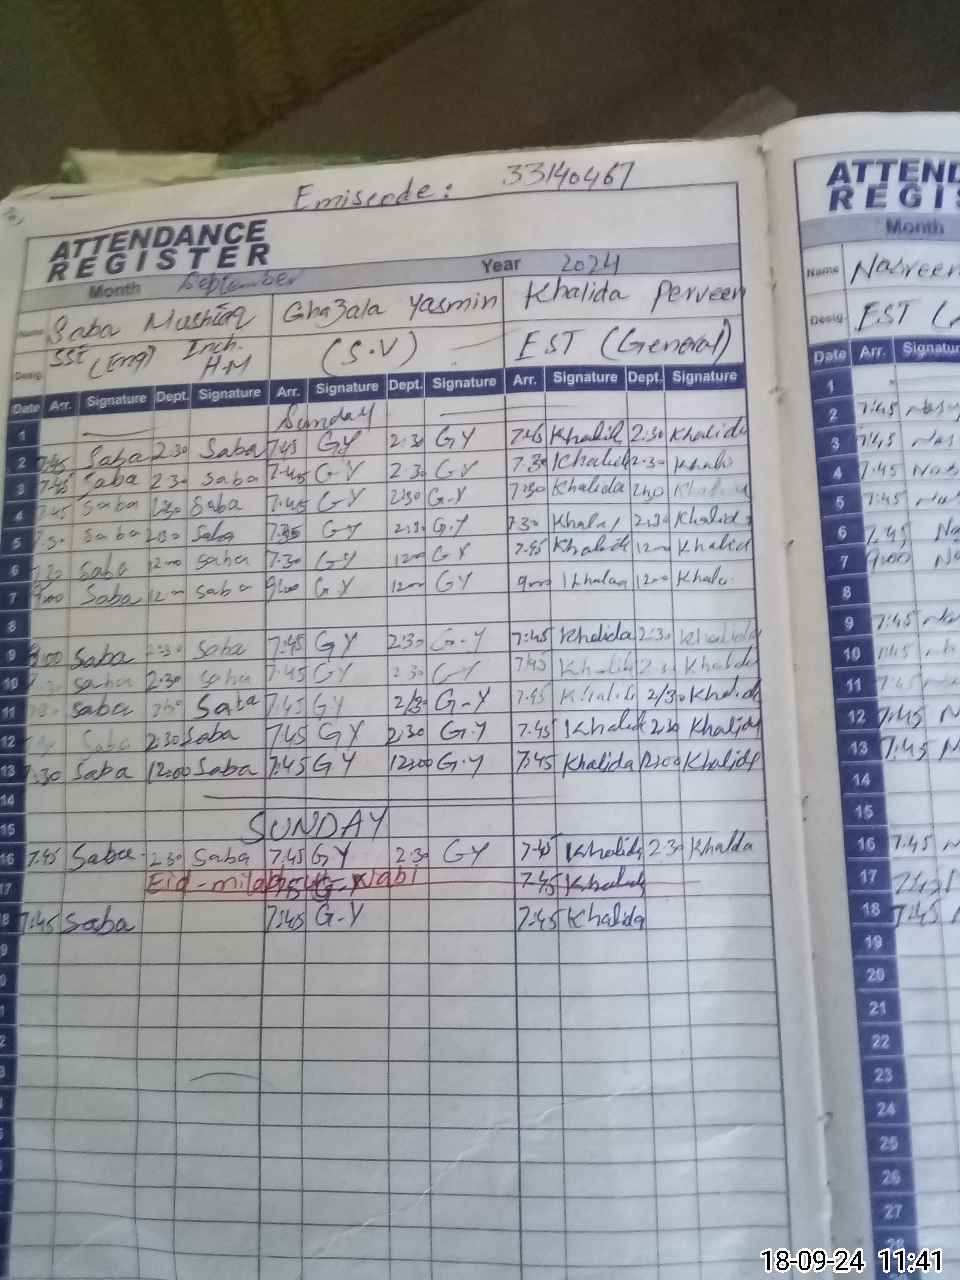 Emiscode: 33140467
ATTENDANCE
REGISTER
Month September Year 2024
Name Saba Mushtaq Ghazala Yasmin Khalida Perveen
Desig. SST (Eng) Inch. H.M (S.V) EST (General)
Date Arr. Signature Dept. Signature Arr. Signature Dept. Signature Arr. Signature Dept. Signature
1 Sunday
2 7:45 Saba 2:30 Saba 7:45 GY 2:30 GY 7:45 Khalid 2:30 Khalida
3 7:45 Saba 2:30 Saba 7:45 G-Y 2:30 G-Y 7:30 Khalid 2:30 Khali
4 7:45 Saba 2:30 Saba 7:45 G-Y 2:30 G-Y 7:30 Khalida 2:30
5 7:30 Saba 2:30 Saba 7:35 G-Y 2:30 G.Y 7:30 2:30 Khalida
6 Saba 1200 Saba 7:30 GY 1200 GY 7:45 Khalida 1200 Khalid
7 9:00 Saba 1200 Saba 9:00 G.Y 1200 GY 900 1200
8
9 9:00 Saba 2:30 Saba 7:45 GY 2:30 G-Y 7:45 Khalida 2:30 Khalida
10 Saba 2:30 Saba 7:45 GY 2:30 GY 7:45 Khalid 2:30 Khalida
11 Saba Saba 7:45 GY 2/30 G-Y 7:45 Khalid 2/30 Khalida
12 Saba 2:30 Saba 7:45 GY 2:30 G.Y 7:45 Khalid 2:30 Khalida
13 7:30 Saba 12:00 Saba 7:45 GY 12:00 G.Y 7:45 Khalida 12:00 Khalida
14
15 SUNDAY
16 7:45 Saba 2:30 Saba 7:45 GY 2:30 GY 7:45 Khalida 2:30 Khalda
17 Eid-milad Nabi 7:45 Khalida
18 7:45 Saba 7:45 G-Y 7:45 Khalida
ATTEND
REGIS
Month
Name Nasreen
Desig. EST
Date Arr. Signature
1
2 7:45
3 7:45 Nas
4 7:45 Nas
5 7:45
6 7:45 Na
7 9:00 Na
8
9 7:45
10 7:45
11 7:45
12 7:45 N
13 7:45 N
14
15
16 7:45
17 7:45
18 7:45
19
20
21
22
23
24
25
26
27
28
18-09-24 11:41